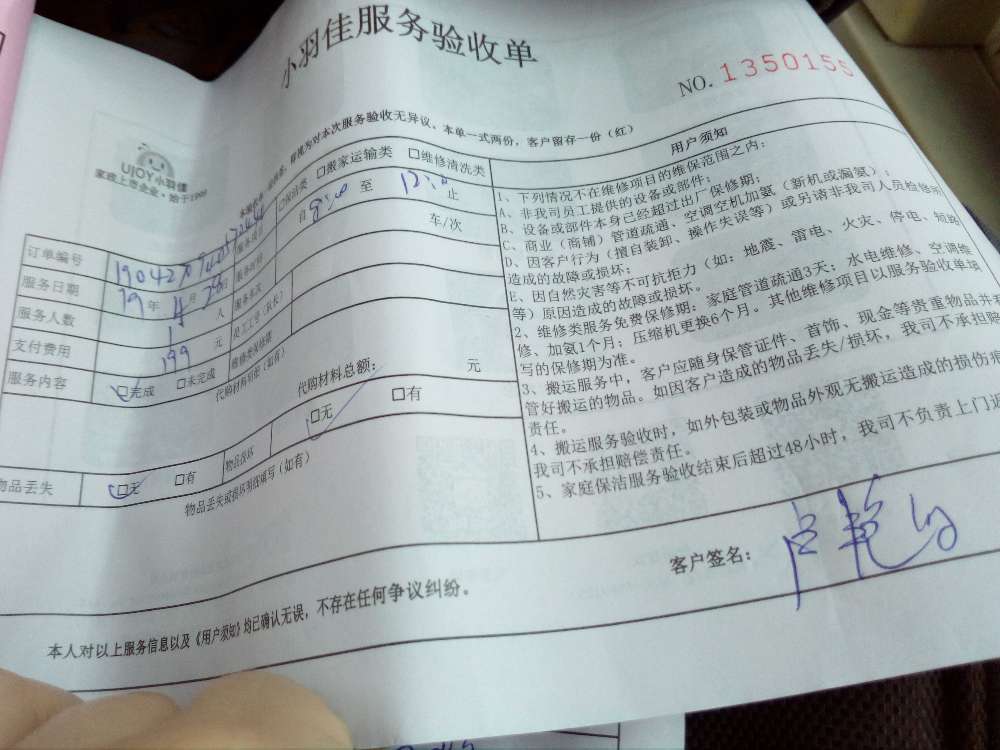 小羽佳服务验收单
NO.1350155
UJOY小羽佳
家政上市企业·始于1999
视为对本次服务验收无异议。本单一式两份，客户留存一份（红）
订单编号
服务项目
□保洁类 □搬家运输类 □维修清洗类
服务日期 19 年 4 月 28 日
服务时段 自 8:00 至 12:00 止
服务人数 1 人
服务车次 车/次
支付费用 199 元
员工工号（队长）
服务内容 □完成 □未完成
代购材料明细（如有）
代购材料总额： 元
物品丢失 □无 □有
物品损坏 □无 □有
物品丢失或损坏明细填写（如有）
用户须知
1、下列情况不在维修项目的维保范围之内：
A、非我司员工提供的设备或部件；
B、设备或部件本身已经超过出厂保修期；
C、商业（商铺）管道疏通、空调空机加氨（新机或漏氨）；
D、因客户行为（擅自装卸、操作失误等）或另请非我司人员检修所
造成的故障或损坏；
E、因自然灾害等不可抗拒力（如：地震、雷电、火灾、停电、短路
等）原因造成的故障或损坏。
2、维修类服务免费保修期：家庭管道疏通3天；水电维修、空调维
修、加氨1个月；压缩机更换6个月。其他维修项目以服务验收单填
写的保修期为准。
3、搬运服务中，客户应随身保管证件、首饰、现金等贵重物品并看
管好搬运的物品。如因客户造成的物品丢失/损坏，我司不承担赔
责任。
4、搬运服务验收时，如外包装或物品外观无搬运造成的损伤痕
我司不承担赔偿责任。
5、家庭保洁服务验收结束后超过48小时，我司不负责上门返
客户签名：
本人对以上服务信息以及《用户须知》均已确认无误，不存在任何争议纠纷。